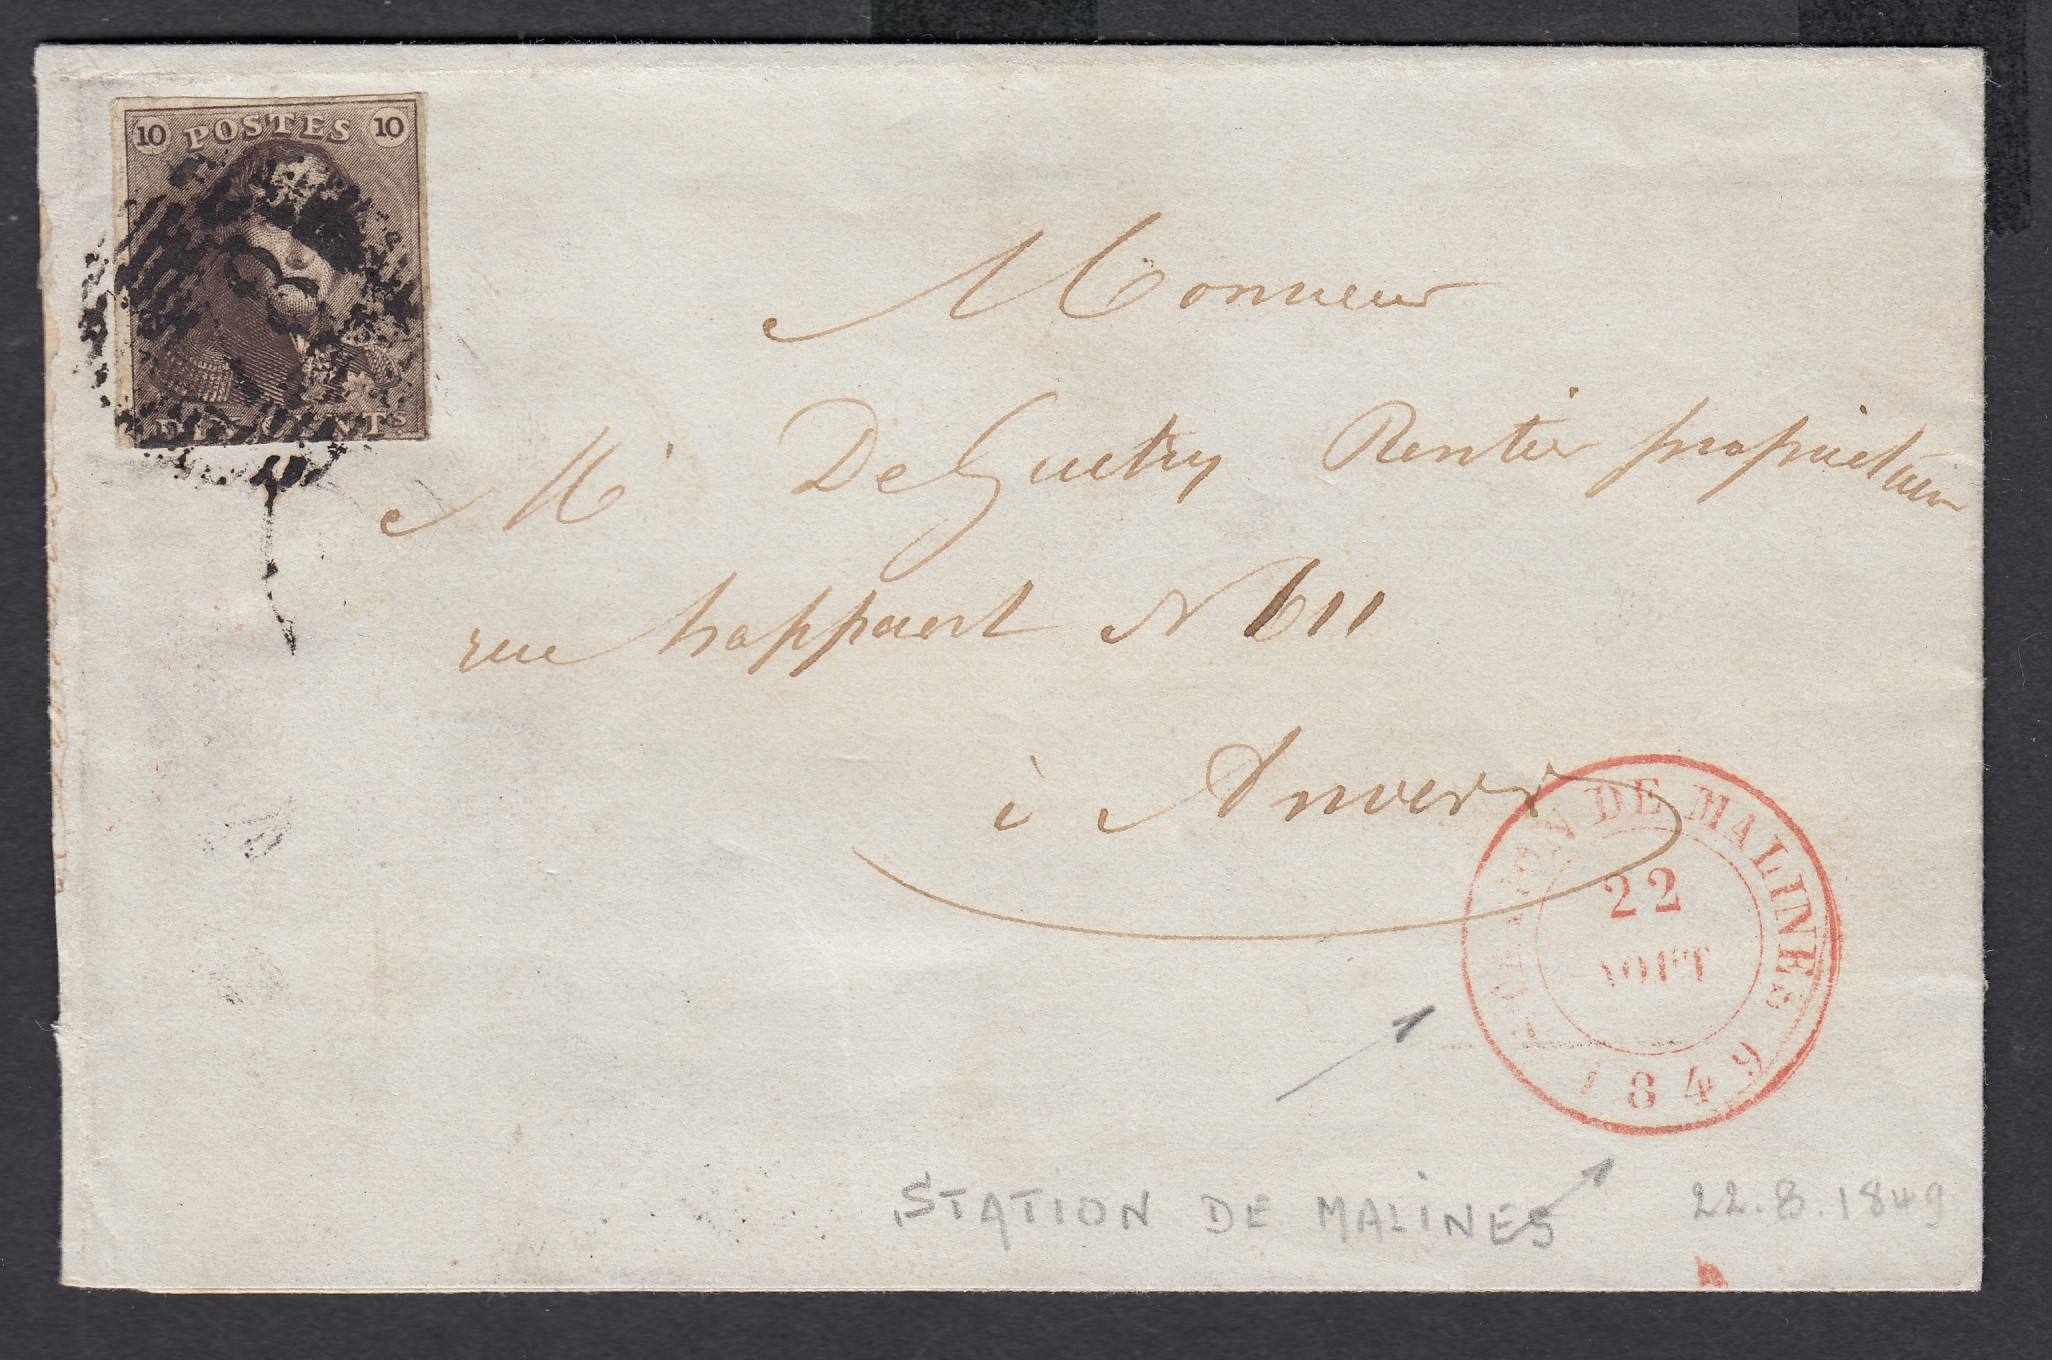 10 POSTES 10
DIX CENTS
Monsieur
Mr De Guetry Rentier propriétaire
rue happaert N 611
à Anvers
STATION DE MALINES
22
AOUT
1849
STATION DE MALINES 22.8.1849